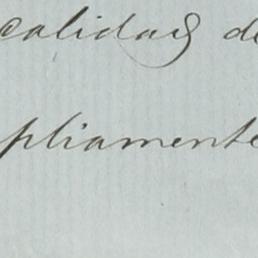 calidad de
pliamente